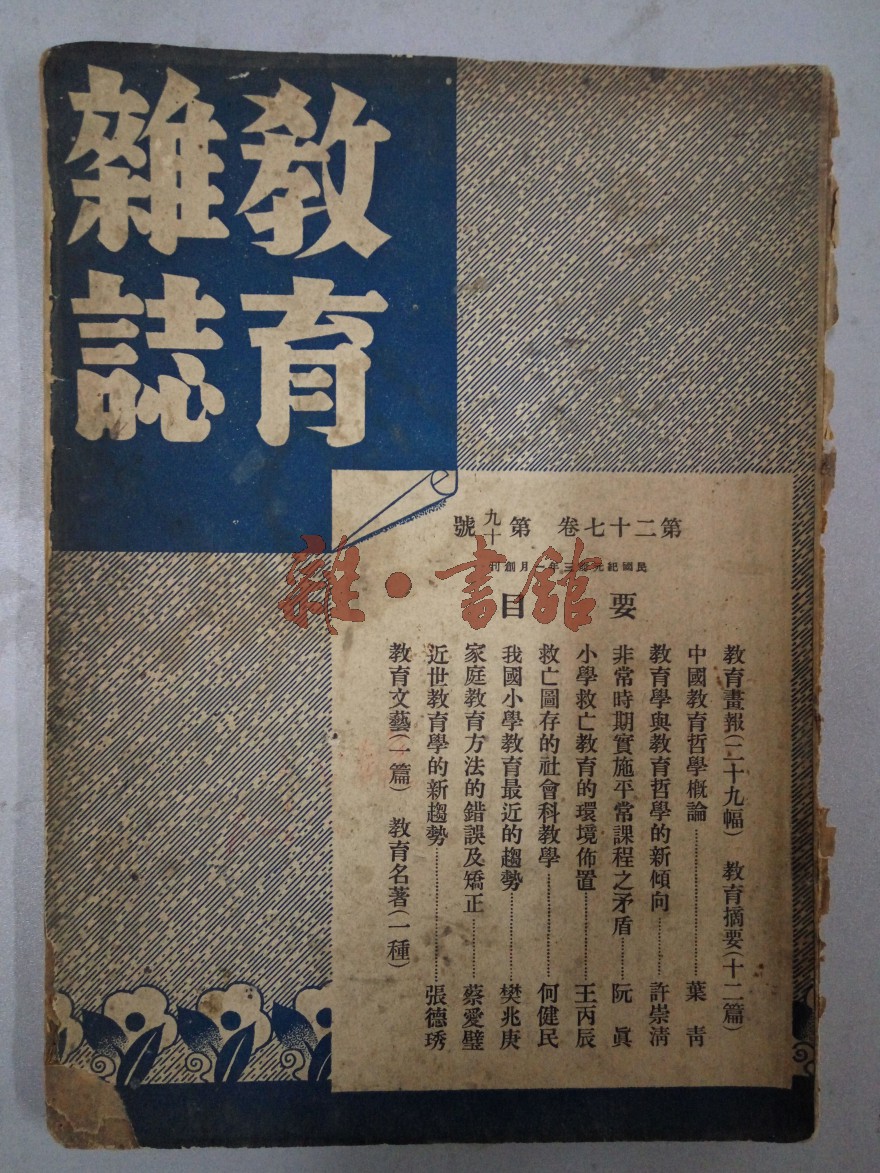 教育
雜誌
第二十七卷 第九十號
民國紀元前三年一月創刊
要目
教育畫報(二十九幅) 教育摘要(十二篇)
中國教育哲學概論………葉 青
教育學與教育哲學的新傾向………許崇清
非常時期實施平常課程之矛盾………阮 眞
小學救亡教育的環境佈置………王丙辰
救亡圖存的社會科教學………何健民
我國小學教育最近的趨勢………樊兆庚
家庭教育方法的錯誤及矯正………蔡愛璧
近世教育學的新趨勢………張德琇
教育文藝(一篇) 教育名著(一種)
雜·書館